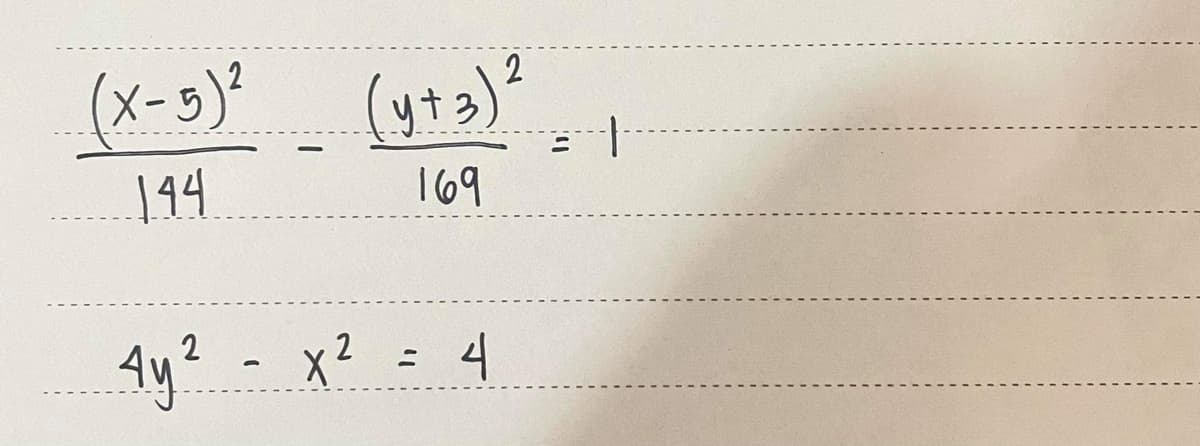 (x-5)² / 144 - (y+3)² / 169 = 1
4y² - x² = 4